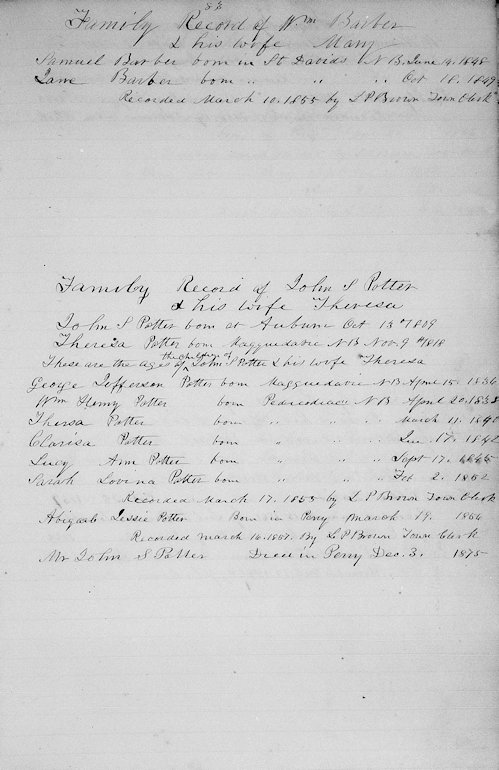 83
Family Record of Wm Barber
& his wife Mary
Samuel Barber born in St Davids N B. June 4. 1848
Jane Barber born " " " Oct 18. 1849
Recorded March 10. 1855 by L P Brown Town Clerk
Family Record of John S Potter
& his wife Theresa
John S Potter born at Auburn Oct 13th 1809
Theresa Potter born Magguadavic N B Nov. 9th 1818
These are the ages of the children of John S Potter & his wife Theresa
George Jefferson Potter born Magguadavic N B April 15. 1836
Wm Henry Potter born N B April 20. 1838
Thersa Potter born " " " March 11. 1840
Clarisa Potter born " " " 17. 1842
Lucy Ann Potter born " " " Sept 17. 1845
Sarah Lovina Potter born " " " Feb 2. 1852
Recorded March 17. 1855 by L P Brown Town Clerk
Abigail Lessie Potter Born in Perry March 19. 1856
Recorded March 16. 1857. By L P Brown Town Clerk
Mr John S Potter Died in Perry Dec. 3. 1875